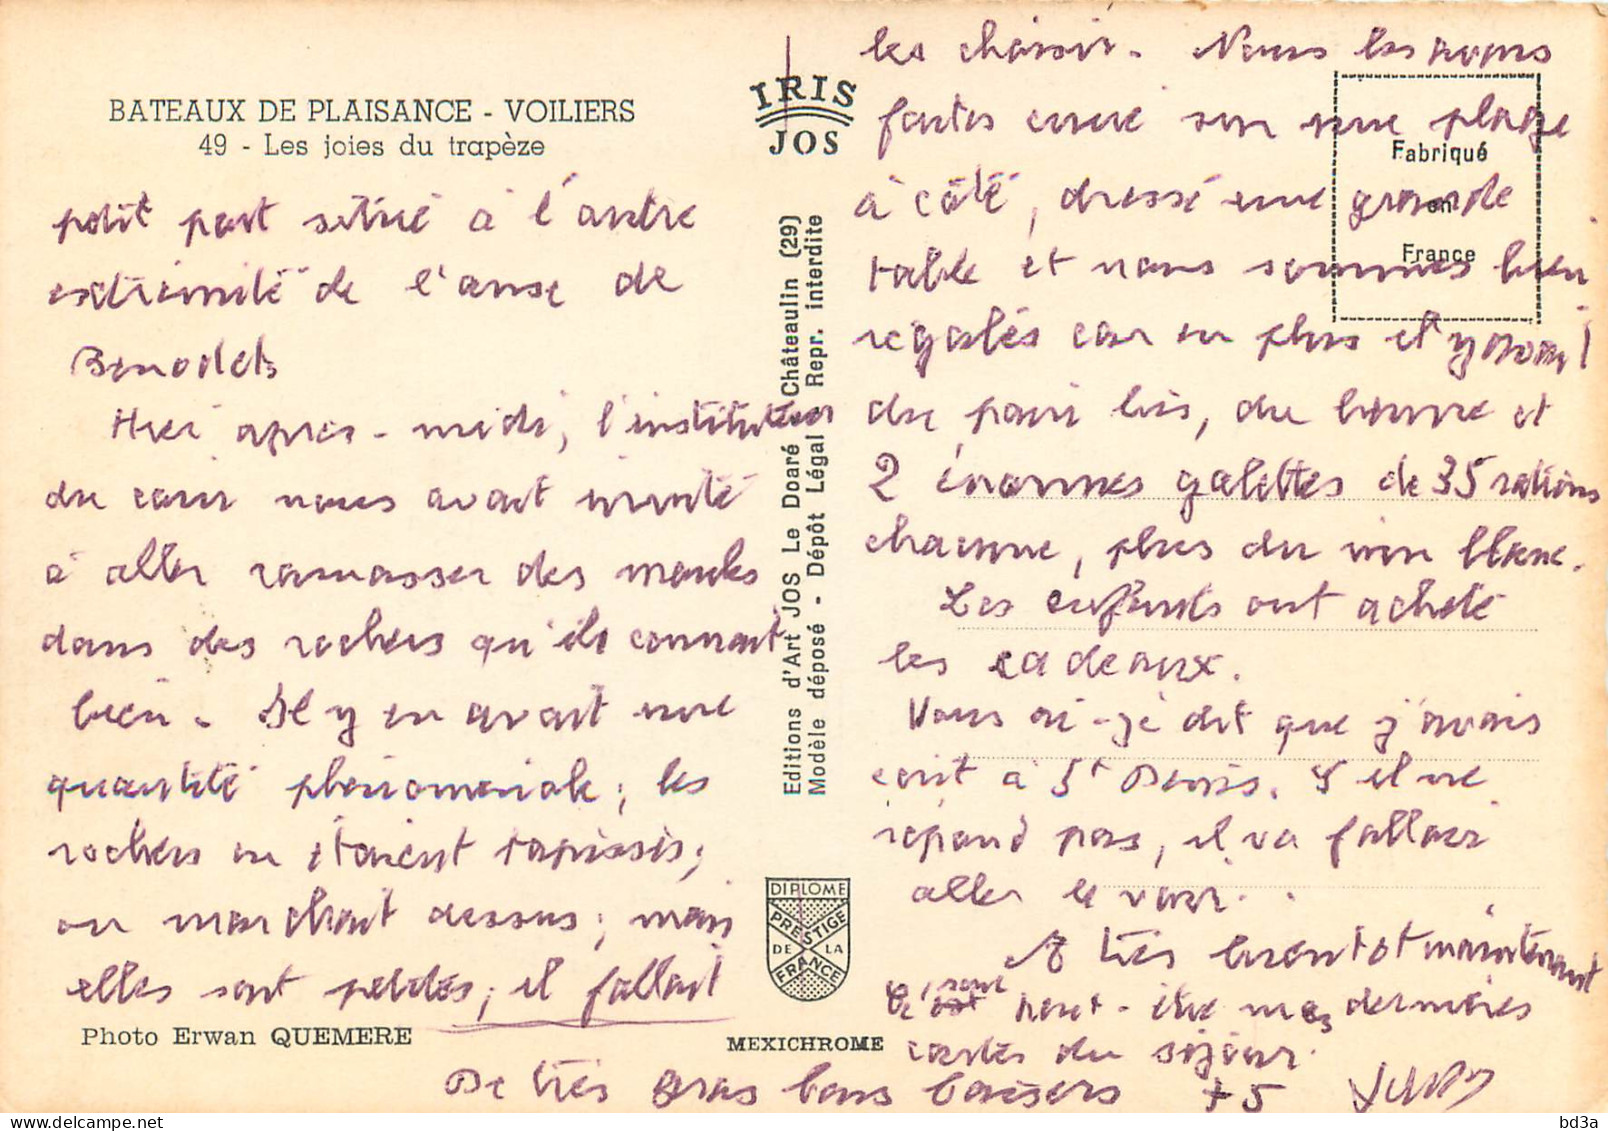 BATEAUX DE PLAISANCE - VOILIERS
49 - Les joies du trapèze
petit port situé à l'autre
extrémité de l'anse de
Benodet.
Hier après-midi, l'instituteur
du coin nous avait invité
à aller ramasser des moules
dans des rochers qu'ils connait
bien. Il y en avait une
quantité phénoménale; les
rochers en étaient tapissés;
on marchait dessus; mais
elles sont petites; il fallait
Photo Erwan QUEMERE
IRIS
JOS
Editions d'Art JOS Le Doaré Châteaulin (29)
Modèle déposé - Dépôt Légal Repr. interdite
DIPLOME
PRESTIGE
DE LA
FRANCE
MEXICHROME
Fabriqué
en
France
les choisir. Nous les avons
faites cuire sur une plage
à côté, dressé une grande
table et nous sommes bien
régalés car en plus il y avait
du pain bis, du beurre et
2 énormes galettes de 35 rations
chacune, plus du vin blanc.
Les enfants ont acheté
les cadeaux.
Vous ai-je dit que j'avais
écrit à St Denis. S'il ne
répond pas, il va falloir
aller le voir.
A très bientôt maintenant
sont peut-être mes dernières
cartes du séjour.
De très gros bons baisers
+ 5